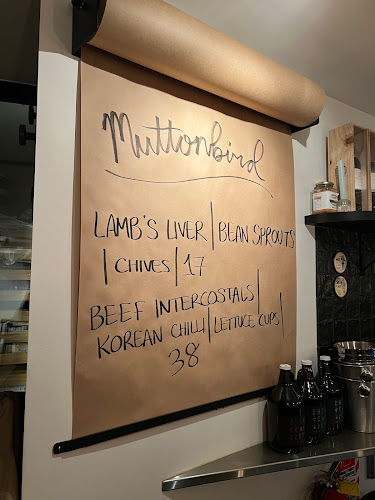 Muttonbird
LAMB'S LIVER | BEAN SPROUTS
| CHIVES | 17
BEEF INTERCOSTALS |
KOREAN CHILLI | LETTUCE CUPS |
38